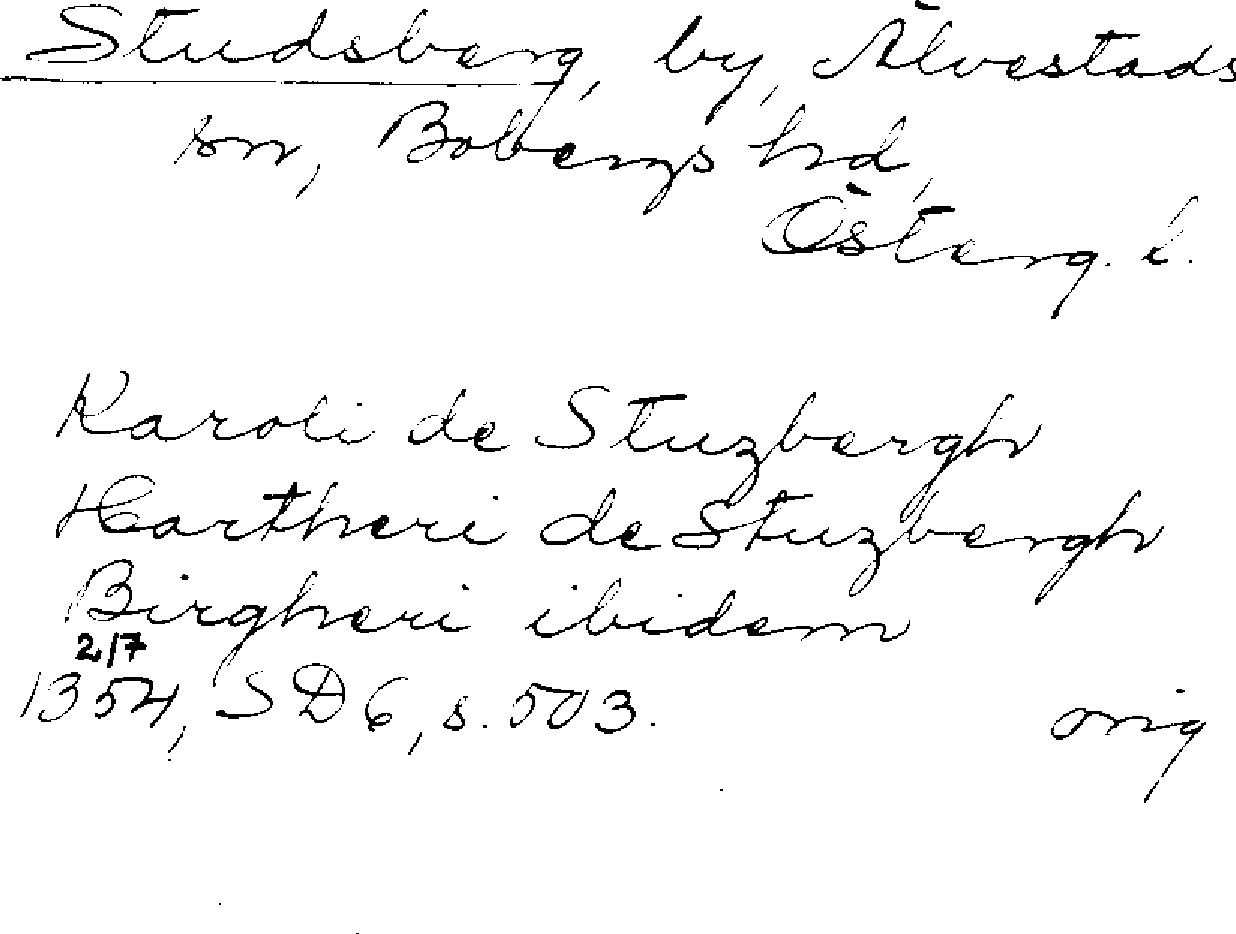 Studsberg, by, Älvestads
sn, Bobergs hd,
Österg. l.
Karoli de Stuzbergh
Hartheri de Stuzbergh
Birgheri ibidem
2/7
1354, SD 6, s. 503.
orig